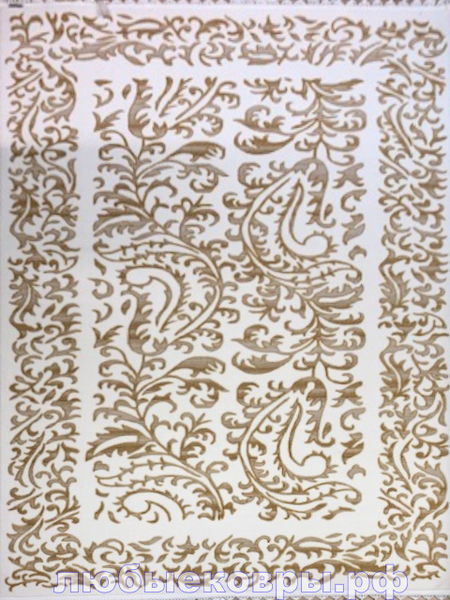 любыековры.рф